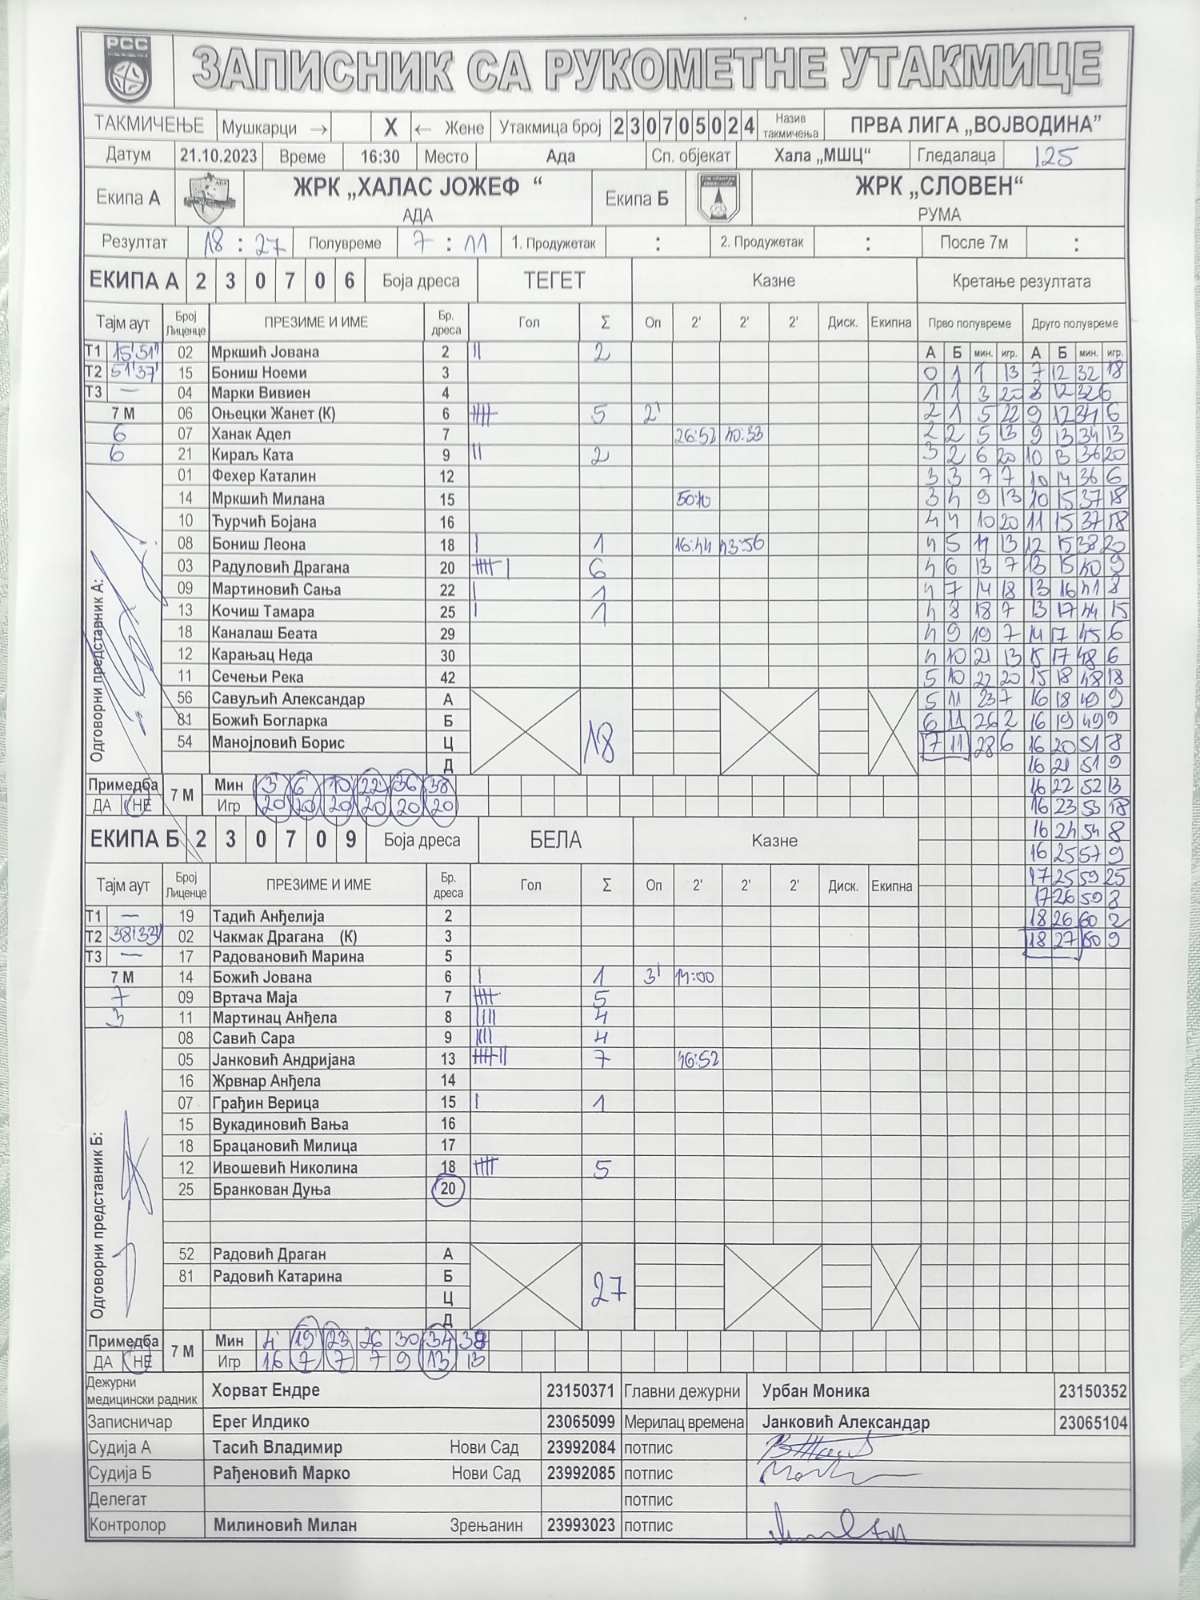 РСС
ЗАПИСНИК СА РУКОМЕТНЕ УТАКМИЦЕ
ТАКМИЧЕЊЕ Мушкарци → X ← Жене Утакмица број 2 3 0 7 0 5 0 2 4 Назив такмичења ПРВА ЛИГА „ВОЈВОДИНА"
Датум 21.10.2023 Време 16:30 Место Ада Сп. објекат Хала „МШЦ" Гледалаца 125
Екипа А ЖРК „ХАЛАС ЈОЖЕФ “ АДА Екипа Б ЖРК „СЛОВЕН“ РУМА
Резултат 18 : 27 Полувреме 7 : 11 1. Продужетак : 2. Продужетак : После 7м :
ЕКИПА А 2 3 0 7 0 6 Боја дреса ТЕГЕТ Казне Кретање резултата
Тајм аут Број Лиценце ПРЕЗИМЕ И ИМЕ Бр. дреса Гол Σ Оп 2' 2' 2' Диск. Екипна Прво полувреме Друго полувреме
Т1 15'51" 02 Мркшић Јована 2 || 2 А Б мин. игр. А Б мин. игр.
Т2 51'37" 15 Бониш Ноеми 3 0 1 1 13 7 12 32 18
Т3 — 04 Марки Вивиен 4 1 1 3 20 8 12 32 6
7 М 06 Оњецки Жанет (К) 6 5 2' 2 1 5 22 9 12 34 6
6 07 Ханак Адел 7 26:52 40:33 2 2 5 13 9 13 34 13
6 21 Кираљ Ката 9 || 2 3 2 6 20 10 13 36 20
01 Фехер Каталин 12 3 3 7 7 10 14 36 6
14 Мркшић Милана 15 50:10 3 4 9 13 10 15 37 18
10 Ћурчић Бојана 16 4 4 10 20 11 15 37 18
08 Бониш Леона 18 | 1 16:44 43:56 4 5 11 13 12 15 38 20
03 Радуловић Драгана 20 6 4 6 13 7 13 15 40 9
09 Мартиновић Сања 22 | 1 4 7 14 18 13 16 41 8
13 Кочиш Тамара 25 | 1 4 8 18 7 13 17 44 15
18 Каналаш Беата 29 4 9 19 7 14 17 45 6
12 Карањац Неда 30 4 10 21 13 15 17 48 6
11 Сечењи Река 42 5 10 22 20 15 18 48 18
56 Савуљић Александар А 5 11 23 7 16 18 49 9
81 Божић Богларка Б 6 11 26 2 16 19 49 9
54 Манојловић Борис Ц 18 7 11 28 6 16 20 51 8
Д 16 21 51 9
Одговорни представник А:
Примедба 7 М Мин 3 6 10 22 36 38 16 22 52 13
ДА НЕ Игр 20 20 20 20 20 20 16 23 53 18
ЕКИПА Б 2 3 0 7 0 9 Боја дреса БЕЛА Казне 16 24 54 8
16 25 57 9
Тајм аут Број Лиценце ПРЕЗИМЕ И ИМЕ Бр. дреса Гол Σ Оп 2' 2' 2' Диск. Екипна 17 25 59 25
17 26 59 8
Т1 — 19 Тадић Анђелија 2 18 26 60 2
Т2 38'33" 02 Чакмак Драгана (К) 3 18 27 60 9
Т3 — 17 Радовановић Марина 5
7 М 14 Божић Јована 6 | 1 3' 14:00
7 09 Вртача Маја 7 5
3 11 Мартинац Анђела 8 |||| 4
08 Савић Сара 9 |||| 4
05 Јанковић Андријана 13 7 46:52
16 Жрвнар Анђела 14
07 Грађин Верица 15 | 1
15 Вукадиновић Вања 16
18 Брацановић Милица 17
12 Ивошевић Николина 18 5
25 Бранкован Дуња 20
52 Радовић Драган А
81 Радовић Катарина Б 27
Ц
Д
Одговорни представник Б:
Примедба 7 М Мин 4 19 23 26 30 34 38
ДА НЕ Игр 16 7 7 7 9 13 13
Дежурни медицински радник Хорват Ендре 23150371 Главни дежурни Урбан Моника 23150352
Записничар Ерег Илдико 23065099 Мерилац времена Јанковић Александар 23065104
Судија А Тасић Владимир Нови Сад 23992084 потпис
Судија Б Рађеновић Марко Нови Сад 23992085 потпис
Делегат потпис
Контролор Милиновић Милан Зрењанин 23993023 потпис